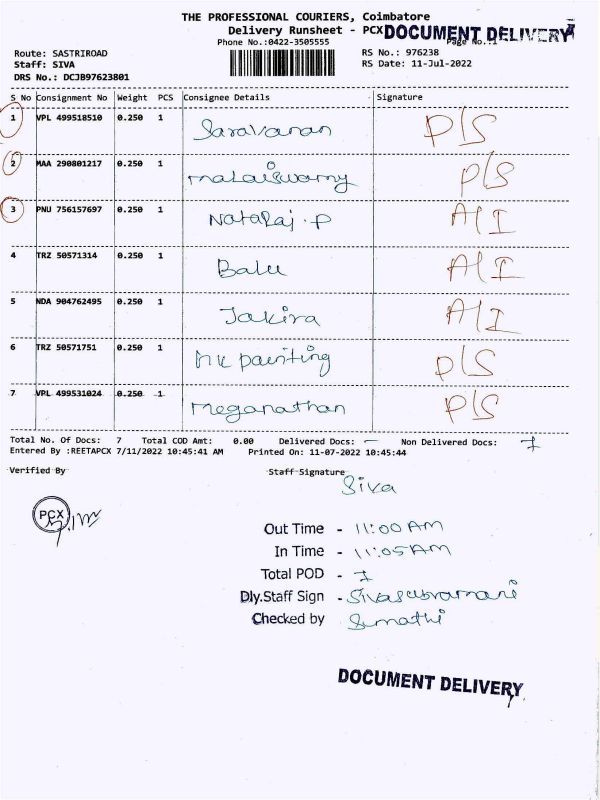 THE PROFESSIONAL COURIERS, Coimbatore
Delivery Runsheet - PCX DOCUMENT DELIVERY
Phone No.:0422-3505555 Page No.:1
Route: SASTRIROAD RS No.: 976238
Staff: SIVA RS Date: 11-Jul-2022
DRS No.: DCJB97623801
S No Consignment No Weight PCS Consignee Details Signature
1 VPL 499518510 0.250 1 Saravanan P/S
2 MAA 290801217 0.250 1 malaiswamy P/S
3 PNU 756157697 0.250 1 Nataraj.P A/I
4 TRZ 50571314 0.250 1 Balu A/I
5 NDA 904762495 0.250 1 Jakira A/I
6 TRZ 50571751 0.250 1 painting P/S
7 VPL 499531024 0.250 1 meganathan P/S
Total No. Of Docs: 7 Total COD Amt: 0.00 Delivered Docs: — Non Delivered Docs: 7
Entered By :REETAPCX 7/11/2022 10:45:41 AM Printed On: 11-07-2022 10:45:44
Verified By Staff Signature
Siva
PCX
Out Time - 11:00 AM
In Time - 11:05 AM
Total POD - 7
Dly.Staff Sign - Sivasubramani
Checked by Sumathi
DOCUMENT DELIVERY